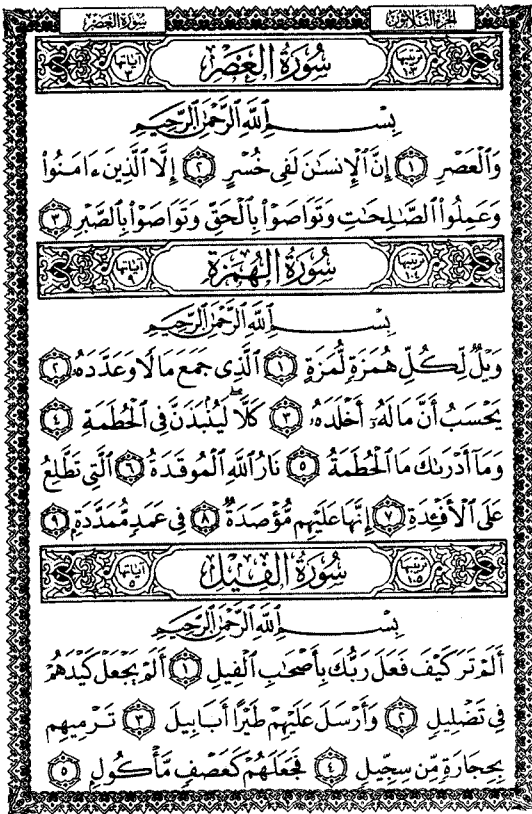 الجزء الثلاثون
سورة العصر
ترتيبها ١٠٣ سُورَةُ الْعَصْرِ آياتها ٣
بِسْمِ ٱللَّهِ ٱلرَّحْمَٰنِ ٱلرَّحِيمِ
وَٱلْعَصْرِ ١ إِنَّ ٱلْإِنسَٰنَ لَفِى خُسْرٍ ٢ إِلَّا ٱلَّذِينَ ءَامَنُوا۟
وَعَمِلُوا۟ ٱلصَّٰلِحَٰتِ وَتَوَاصَوْا۟ بِٱلْحَقِّ وَتَوَاصَوْا۟ بِٱلصَّبْرِ ٣
ترتيبها ١٠٤ سُورَةُ الْهُمَزَةِ آياتها ٩
بِسْمِ ٱللَّهِ ٱلرَّحْمَٰنِ ٱلرَّحِيمِ
وَيْلٌ لِّكُلِّ هُمَزَةٍ لُّمَزَةٍ ١ ٱلَّذِى جَمَعَ مَالًا وَعَدَّدَهُۥ ٢
يَحْسَبُ أَنَّ مَالَهُۥٓ أَخْلَدَهُۥ ٣ كَلَّا ۖ لَيُنۢبَذَنَّ فِى ٱلْحُطَمَةِ ٤
وَمَآ أَدْرَىٰكَ مَا ٱلْحُطَمَةُ ٥ نَارُ ٱللَّهِ ٱلْمُوقَدَةُ ٦ ٱلَّتِى تَطَّلِعُ
عَلَى ٱلْأَفْـِٔدَةِ ٧ إِنَّهَا عَلَيْهِم مُّؤْصَدَةٌ ٨ فِى عَمَدٍ مُّمَدَّدَةٍۭ ٩
ترتيبها ١٠٥ سُورَةُ الْفِيلِ آياتها ٥
بِسْمِ ٱللَّهِ ٱلرَّحْمَٰنِ ٱلرَّحِيمِ
أَلَمْ تَرَ كَيْفَ فَعَلَ رَبُّكَ بِأَصْحَٰبِ ٱلْفِيلِ ١ أَلَمْ يَجْعَلْ كَيْدَهُمْ
فِى تَضْلِيلٍ ٢ وَأَرْسَلَ عَلَيْهِمْ طَيْرًا أَبَابِيلَ ٣ تَرْمِيهِم
بِحِجَارَةٍ مِّن سِجِّيلٍ ٤ فَجَعَلَهُمْ كَعَصْفٍ مَّأْكُولٍۭ ٥